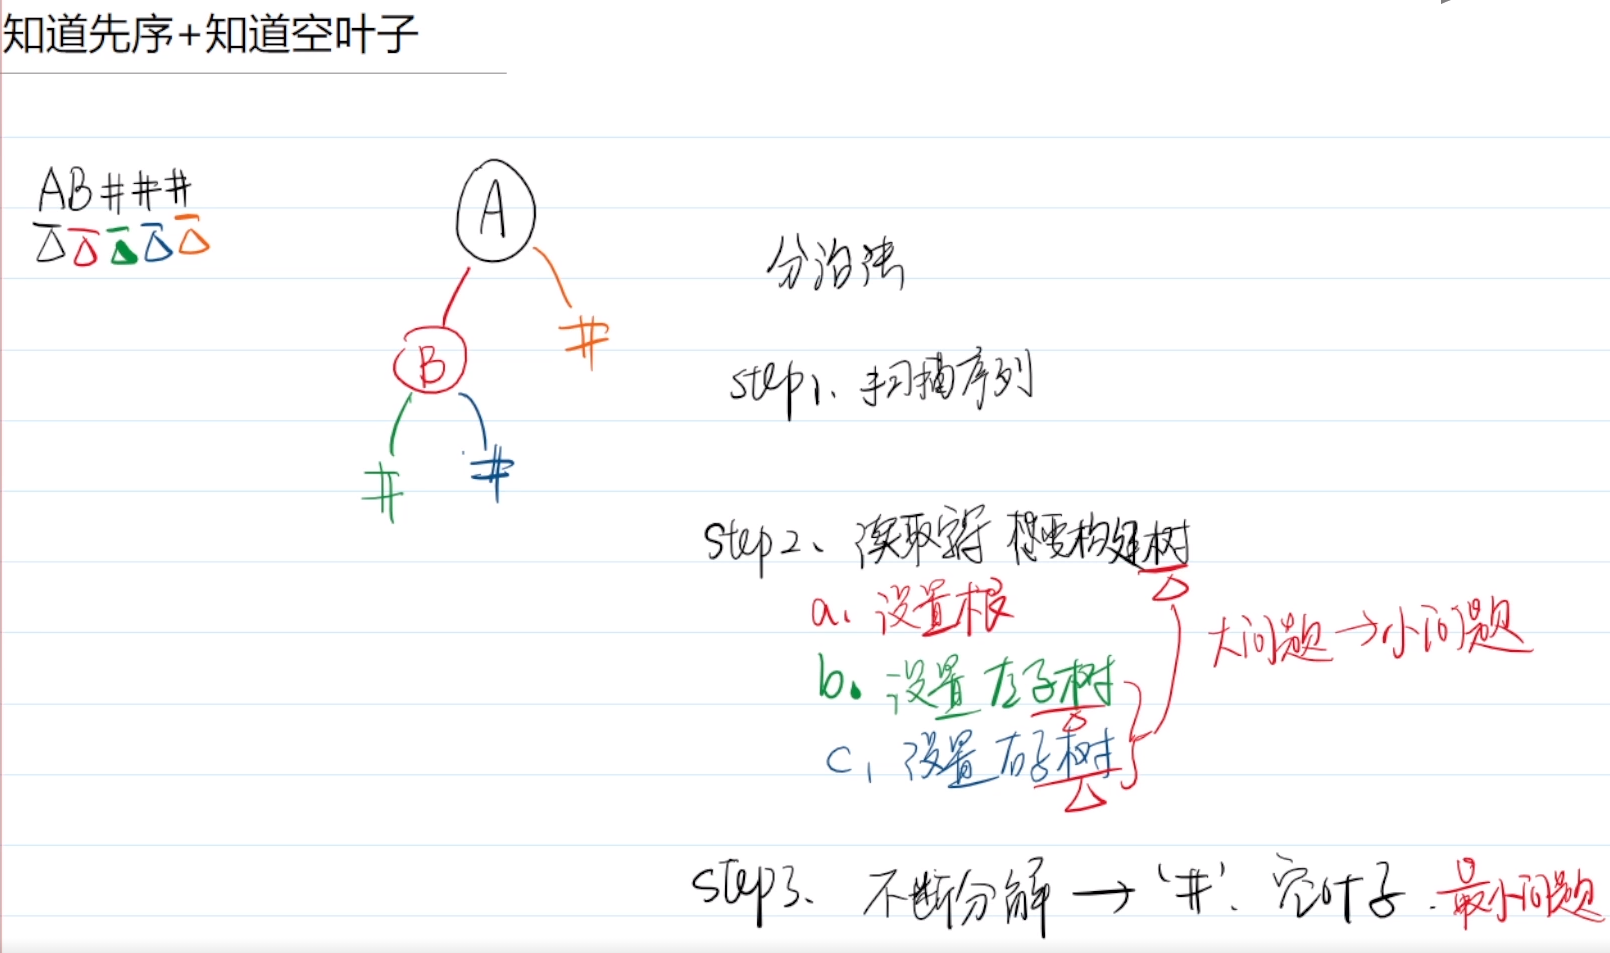 知道先序+知道空叶子
AB###
A
B
#
#
#
分治法
step1、扫描序列
step2、读取字符 想要构建树
a、设置根
b. 设置左子树
c、设置右子树
大问题→小问题
step3、不断分解 → '#'. 空叶子. 最小问题